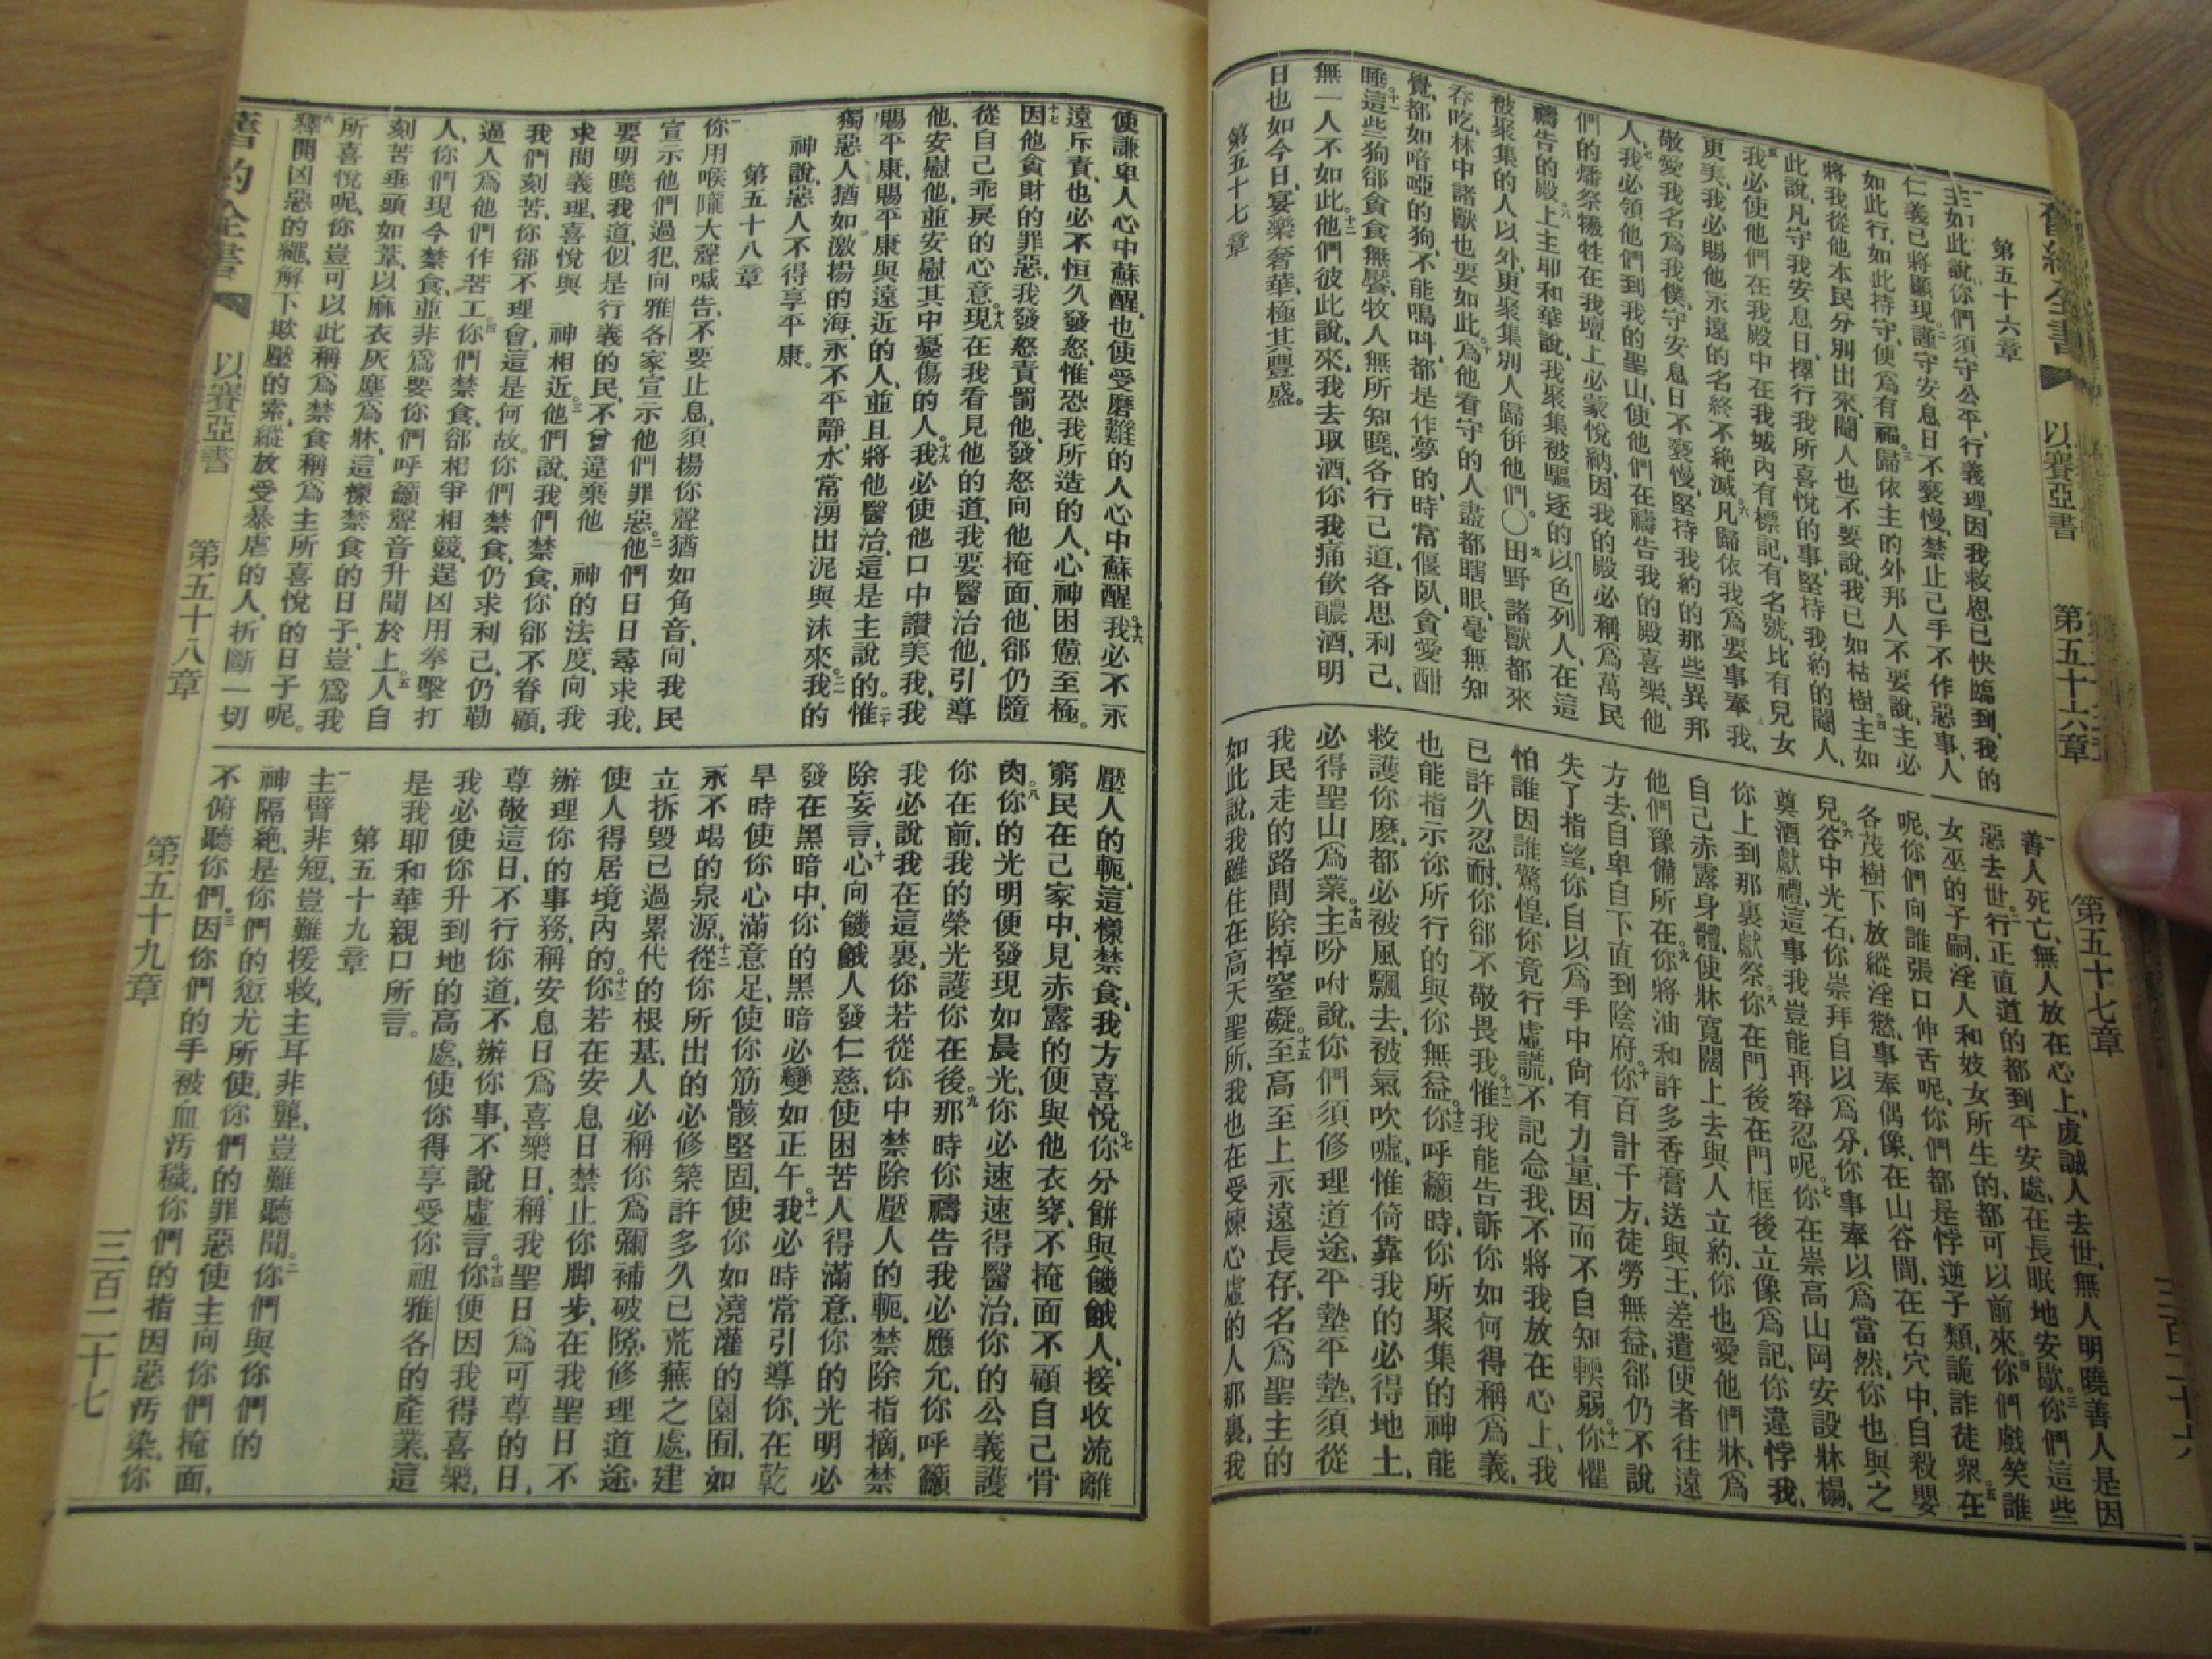 舊約全書 以賽亞書 第五十六章 第五十七章 三百二十六
第五十六章
一主如此說、你們須守公平、行義理、因我救恩已快臨到、我的
仁義已將顯現。二謹守安息日不褻慢、禁止己手不作惡事、人
如此行、如此持守、便為有福。三歸依主的外邦人不要說、主必
將我從他本民分別出來、閹人也不要說、我已如枯樹。四主如
此說、凡守我安息日、擇行我所喜悅的事、堅持我約的閹人、
五我必使他們在我殿中在我城內有標記、有名號、比有兒女
更美、我必賜他永遠的名終不絕滅。六凡歸依我為要事奉我、
敬愛我名為我僕、守安息日不褻慢、堅持我約的那些異邦
人、七我必領他們到我的聖山、使他們在禱告我的殿喜樂、他
們的燔祭犧牲在我壇上必蒙悅納、因我的殿必稱為萬民
禱告的殿。八上主耶和華說、我聚集被驅逐的以色列人、在這
被聚集的人以外、更聚集別人歸併他們。〇九田野諸獸都來
吞吃、林中諸獸也要如此。十為他看守的人盡都瞎眼、毫無知
覺、都如喑啞的狗、不能鳴呌、都是作夢的、時常偃臥、貪愛酣
睡。十一這些狗卻貪食無饜、牧人無所知曉、各行己道、各思利己、
無一人不如此。十二他們彼此說、來、我去取酒、你我痛飲醲酒、明
日也如今日、宴樂奢華、極其豐盛。
第五十七章
一善人死亡、無人放在心上、虔誠人去世、無人明曉善人是因
惡去世。二行正直道的都到平安處、在長眠地安歇。三你們這些
女巫的子嗣、淫人和妓女所生的、都可以前來。四你們戲笑誰
呢、你們向誰張口伸舌呢、你們都是悖逆子類、詭詐徒衆。五在
各茂樹下放縱淫慾、事奉偶像、在山谷間、在石穴中、自殺嬰
兒。六谷中光石、你崇拜自以為分、你事奉以為當然、你也與之
奠酒獻禮、這事我豈能再容忍呢。七你在崇高山岡安設牀榻、
你上到那裏獻祭。八你在門後在門框後立像為記、你違悖我、
自己赤露身體、使牀寬闊上去與人立約、你也愛他們牀、為
他們豫備所在。九你將油和許多香膏送與王、差遣使者往遠
方去、自卑自下直到陰府。十你百計千方、徒勞無益、卻仍不說
失了指望、你自以為手中尙有力量、因而不自知輭弱。十一你懼
怕誰因誰驚惶、你竟行虛謊、不記念我、不將我放在心上、我
已許久忍耐、你卻不敬畏我。十二惟我能告訴你如何得稱為義、
也能指示你所行的與你無益。十三你呼籲時、你所聚集的神能
救護你麼、都必被風飄去、被氣吹噓、惟倚靠我的必得地土、
必得聖山為業。十四主吩咐說、你們須修理道途、平墊平墊、須從
我民走的路間除掉窒礙。十五至高至上永遠長存、名為聖主的
如此說、我雖住在高天聖所、我也在受煉心虛的人那裏、我
使謙卑人心中蘇醒、也使受磨難的人心中蘇醒。十六我必不永
遠斥責、也必不恒久發怒、惟恐我所造的人、心神困憊至極。
十七因他貪財的罪惡、我發怒責罰他、發怒向他掩面、他卻仍隨
從自己乖戾的心意。十八現在我看見他的道、我要醫治他、引導
他、安慰他、並安慰其中憂傷的人。十九我必使他口中讚美我、我
賜平康、賜平康與遠近的人、並且將他醫治、這是主說的。二十惟
獨惡人猶如激揚的海、永不平靜、水常湧出泥與沫來。二一我的
神說、惡人不得享平康。
第五十八章
一你用喉嚨大聲喊告、不要止息、須揚你聲猶如角音、向我民
宣示他們過犯、向雅各家宣示他們罪惡。二他們日日尋求我、
要明曉我道、似是行義的民、不曾違棄他 神的法度、向我
求問義理、喜悅與 神相近。三他們說、我們禁食、你卻不眷顧、
我們刻苦、你卻不理會、這是何故。你們禁食、仍求利己、仍勒
逼人為他們作苦工。四你們禁食、卻相爭相競、逞凶用拳擊打
人、你們現今禁食、並非為要你們呼籲聲音升聞於上。五人自
刻苦垂頭如葦、以麻衣灰塵為牀、這樣禁食的日子、豈為我
所喜悅呢、你豈可以此稱為禁食、稱為主所喜悅的日子呢。
六釋開凶惡的繩、解下欺壓的索、縱放受暴虐的人、折斷一切
壓人的軛、這樣禁食、我方喜悅。七你分餅與饑餓人、接收流離
窮民在己家中、見赤露的便與他衣穿、不掩面不顧自己骨
肉。八你的光明便發現如晨光、你必速速得醫治、你的公義護
你在前、我的榮光護你在後。九那時你禱告我必應允、你呼籲
我必說我在這裏、你若從你中禁除壓人的軛、禁除指摘、禁
除妄言、十心向饑餓人發仁慈、使困苦人得滿意、你的光明必
發在黑暗中、你的黑暗必變如正午。十一我必時常引導你、在乾
旱時使你心滿意足、使你筋骸堅固、使你如澆灌的園囿、如
永不竭的泉源。十二從你所出的必修築許多久已荒蕪之處、建
立拆毀已過累代的根基、人必稱你為彌補破隙、修理道途、
使人得居境內的。十三你若在安息日禁止你脚步、在我聖日不
辦理你的事務、稱安息日為喜樂日、稱我聖日為可尊的日、
尊敬這日、不行你道、不辦你事、不說虛言。十四你便因我得喜樂、
我必使你升到地的高處、使你得享受你祖雅各的產業、這
是我耶和華親口所言。
第五十九章
一主臂非短、豈難援救、主耳非聾、豈難聽聞。二你們與你們的
神隔絶、是你們的愆尤所使、你們的罪惡使主向你們掩面、
不俯聽你們。三因你們的手被血汚穢、你們的指因惡汚染、你
舊約全書 以賽亞書 第五十八章 第五十九章 三百二十七